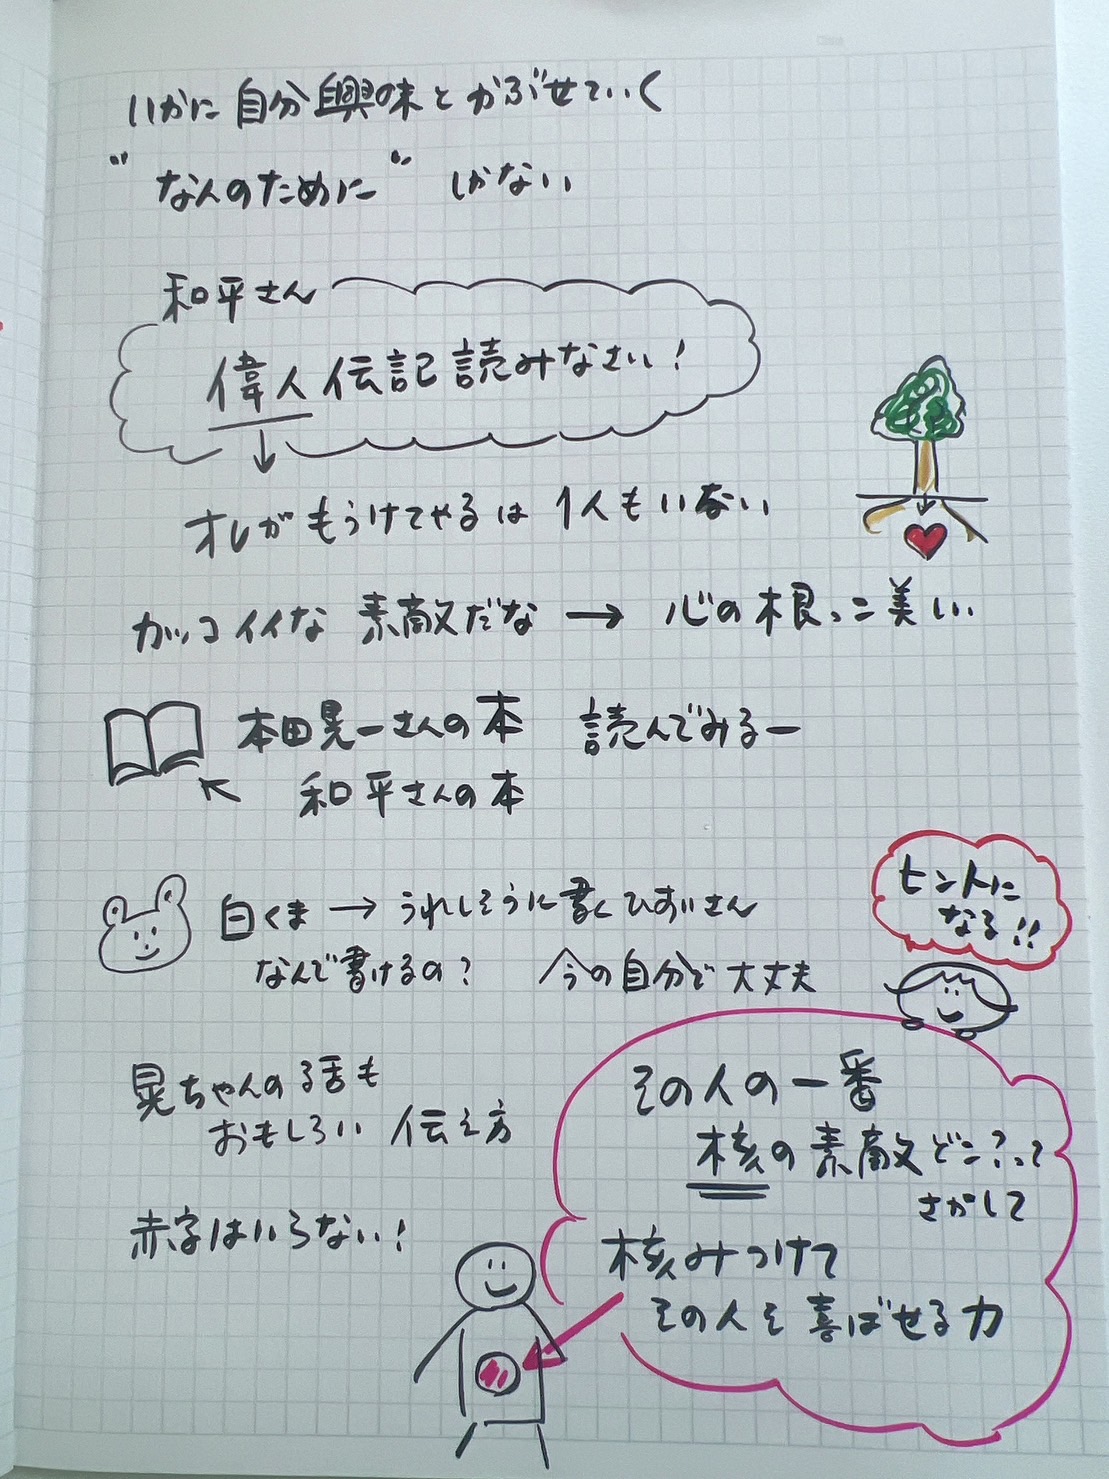 いかに自分興味とかぶせていく
"なんのために" しかない
和平さん
偉人伝記読みなさい!
オレがもうけてやるは1人もいない
カッコイイな 素敵だな → 心の根っこ美しい
本田晃一さんの本 読んでみるー
和平さんの本
白くま → うれしそうに書くひすいさん
なんで書けるの? 今の自分で大丈夫
ヒントに
なる!!
晃ちゃんの話も
おもしろい 伝え方
赤字はいらない!
その人の一番
核の素敵どこ?って
さがして
核みつけて
その人を喜ばせる力